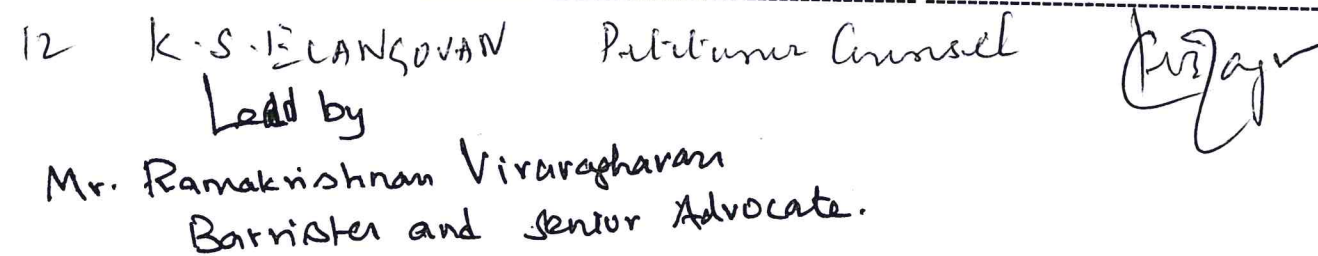 12 K.S. ELANGOVAN Petitioner Counsel
Lead by
Mr. Ramakrishnan Viraraghavan
Barrister and Senior Advocate.